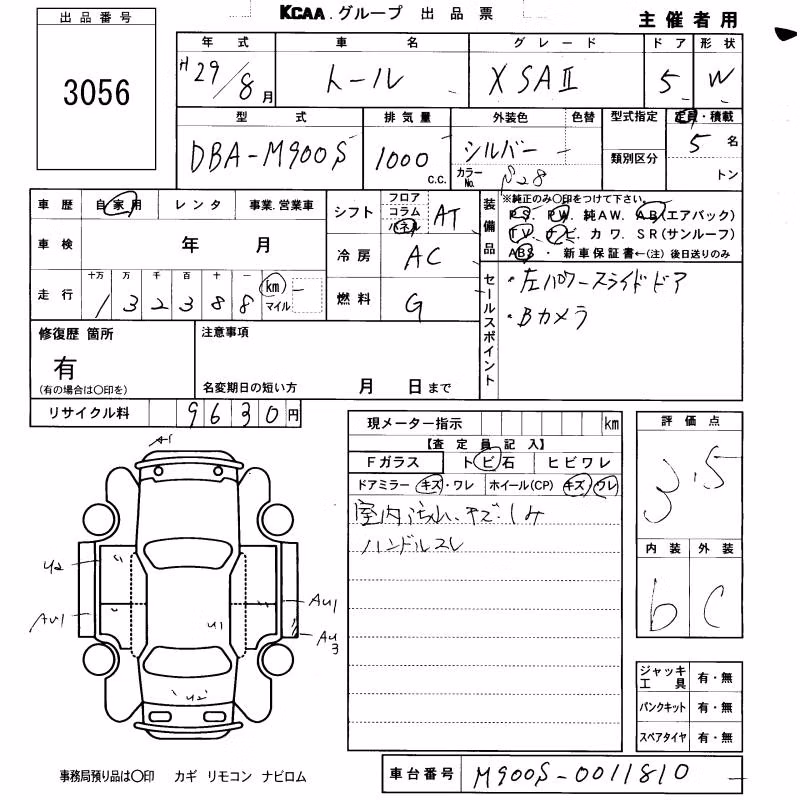 出品番号
3056
KCAA.グループ 出品票
主催者用
年式 車名 グレード ドア 形状
H29/8月 トール X SAⅡ 5 W
型式 排気量 外装色 色替 型式指定 定員・積載
DBA-M900S 1000 c.c. シルバー 5名
カラーNo. S28 類別区分 トン
車歴 自家用 レンタ 事業.営業車
車検 年 月
走行 十万 万 千 百 十 一
132388 km マイル
シフト フロア コラム パネル AT
冷房 AC
燃料 G
装備品
※純正のみ○印をつけて下さい。
PS. PW. 純AW. AB(エアバック)
TV. ナビ. カワ. SR(サンルーフ)
ABS ・ 新車保証書←(注) 後日送りのみ
セールスポイント
・左パワースライドドア
・Bカメラ
修復歴 箇所
有
(有の場合は○印を)
注意事項
名変期日の短い方 月 日まで
リサイクル料 9630円
現メーター指示 km
【査定員記入】
Fガラス トビ石 ヒビワレ
ドアミラー キズ・ワレ ホイール(CP) キズ・ワレ
室内汚れ、キズ、シミ
ハンドルスレ
評価点
3.5
内装 外装
b C
A1
U2
AU1
U1
AU1
AU3
U2
ジャッキ工具 有・無
パンクキット 有・無
スペアタイヤ 有・無
事務局預り品は○印 カギ リモコン ナビロム
車台番号 M900S-0011810